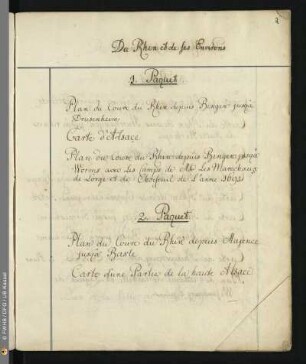 2
Du Rhin et de ses Environs
1. Paquet
Plan du Cours du Rhin depuis Bingen jusqu'a
Drusenheim
Carte d'Alsace
Plan du Cours du Rhin depuis Bingen jusqu'a
Worms avec les Camps de Mr Les Marechaux
de Lorge et de Choiseuil de L'anée
2. Paquet
Plan du Cours du Rhin depuis Majence
jusqu'a Basle
Carte d'une Partie de la haute Alsace